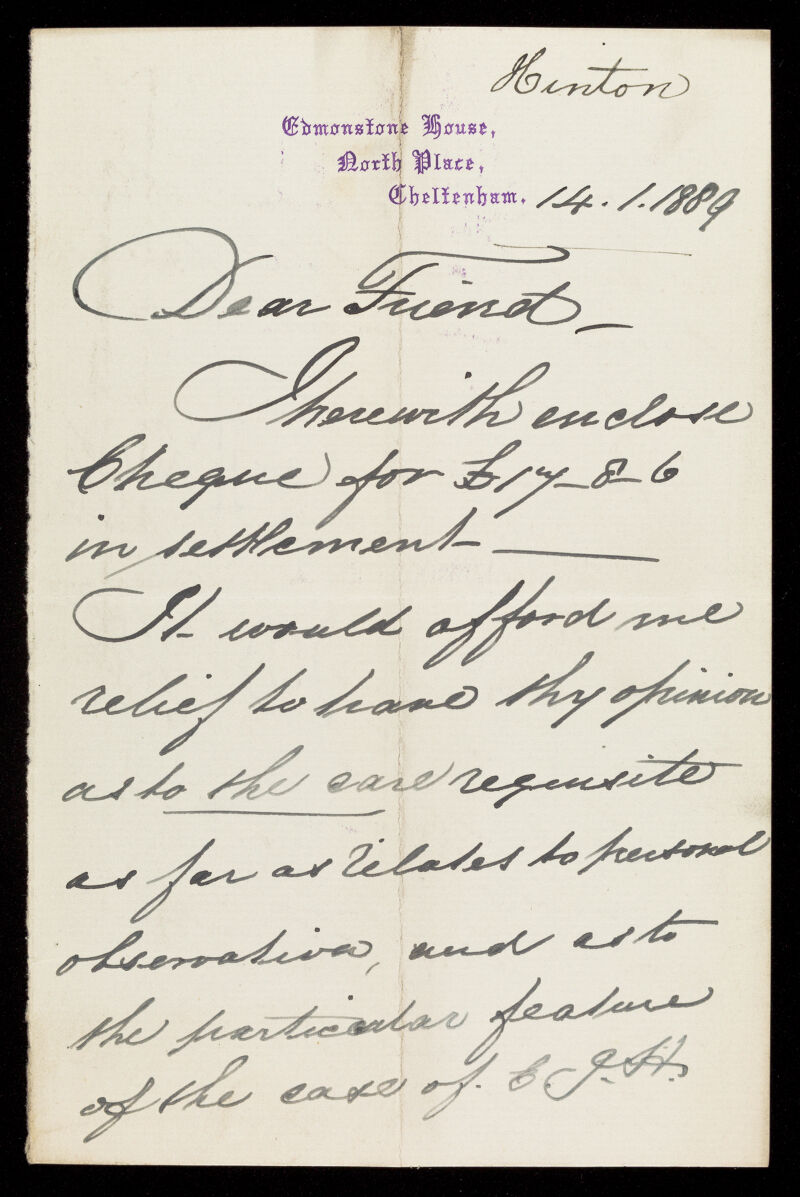 Hinton
Edmonstone House,
North Place,
Cheltenham. 14.1.1889
Dear Friend_
I herewith enclose
Cheque for £17_8_6
in settlement_
It would afford me
relief to have thy opinion
as to the care requisite
as far as relates to personal
observation, and as to
the particular feature
of the case of. E. J. H.